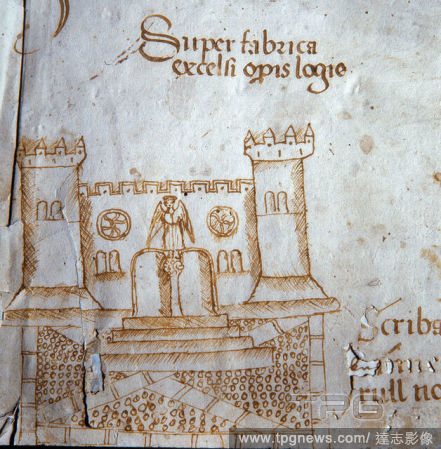 Super fabrica
excelsi opis logie
Scriba
TPG
www.tpgnews.com/ 達志影像